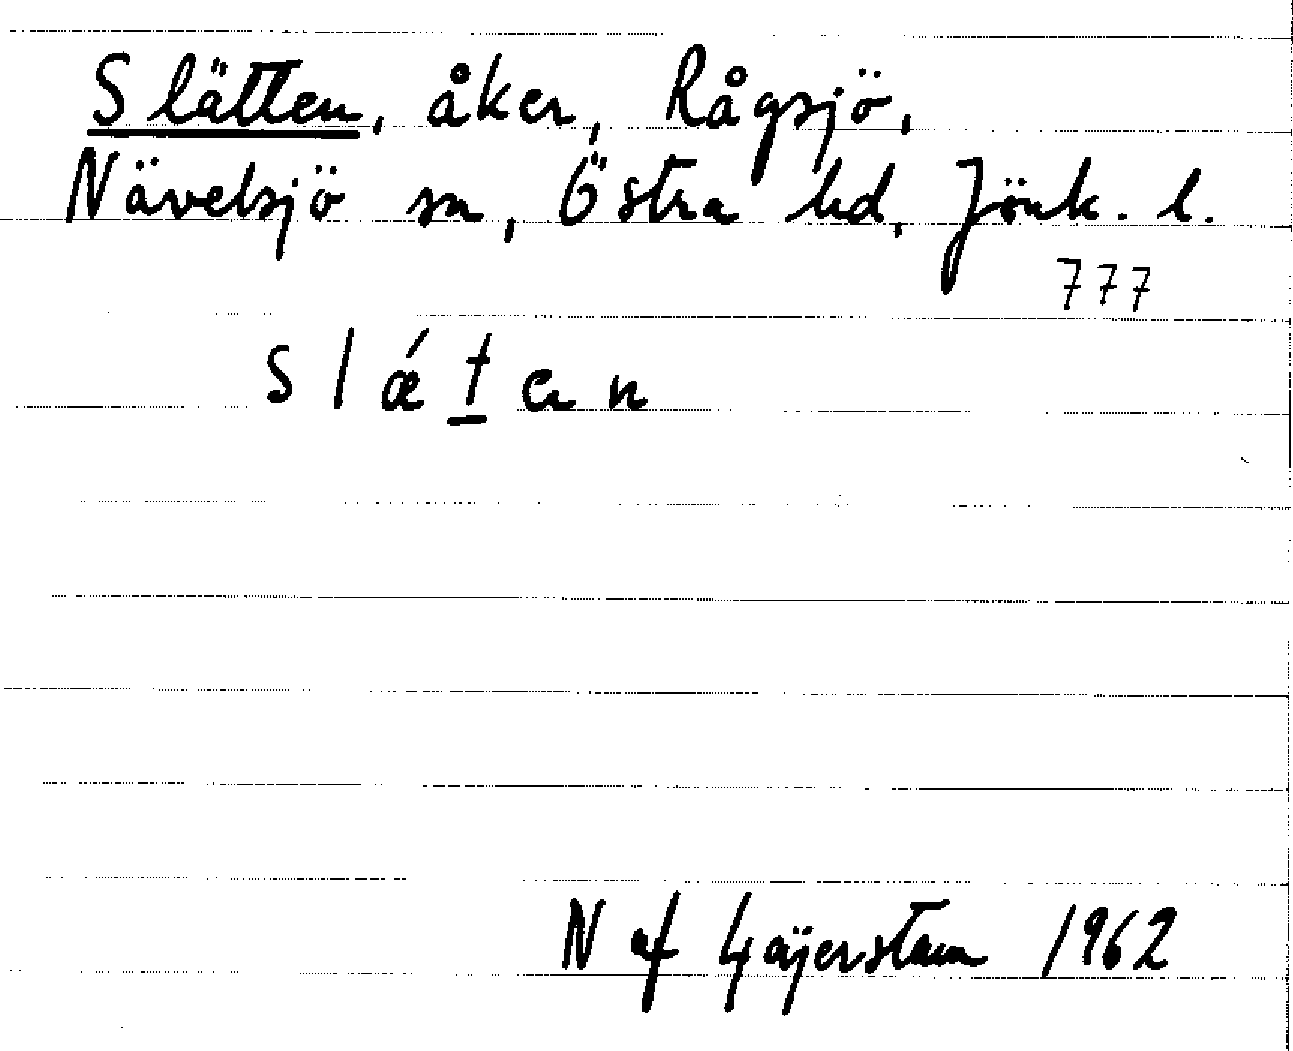 Slätten, åker, Rågsjö,
Nävelsjö sn, Östra hd, Jönk. l.
777
slǽt̲en
N af Gäijerstam 1962